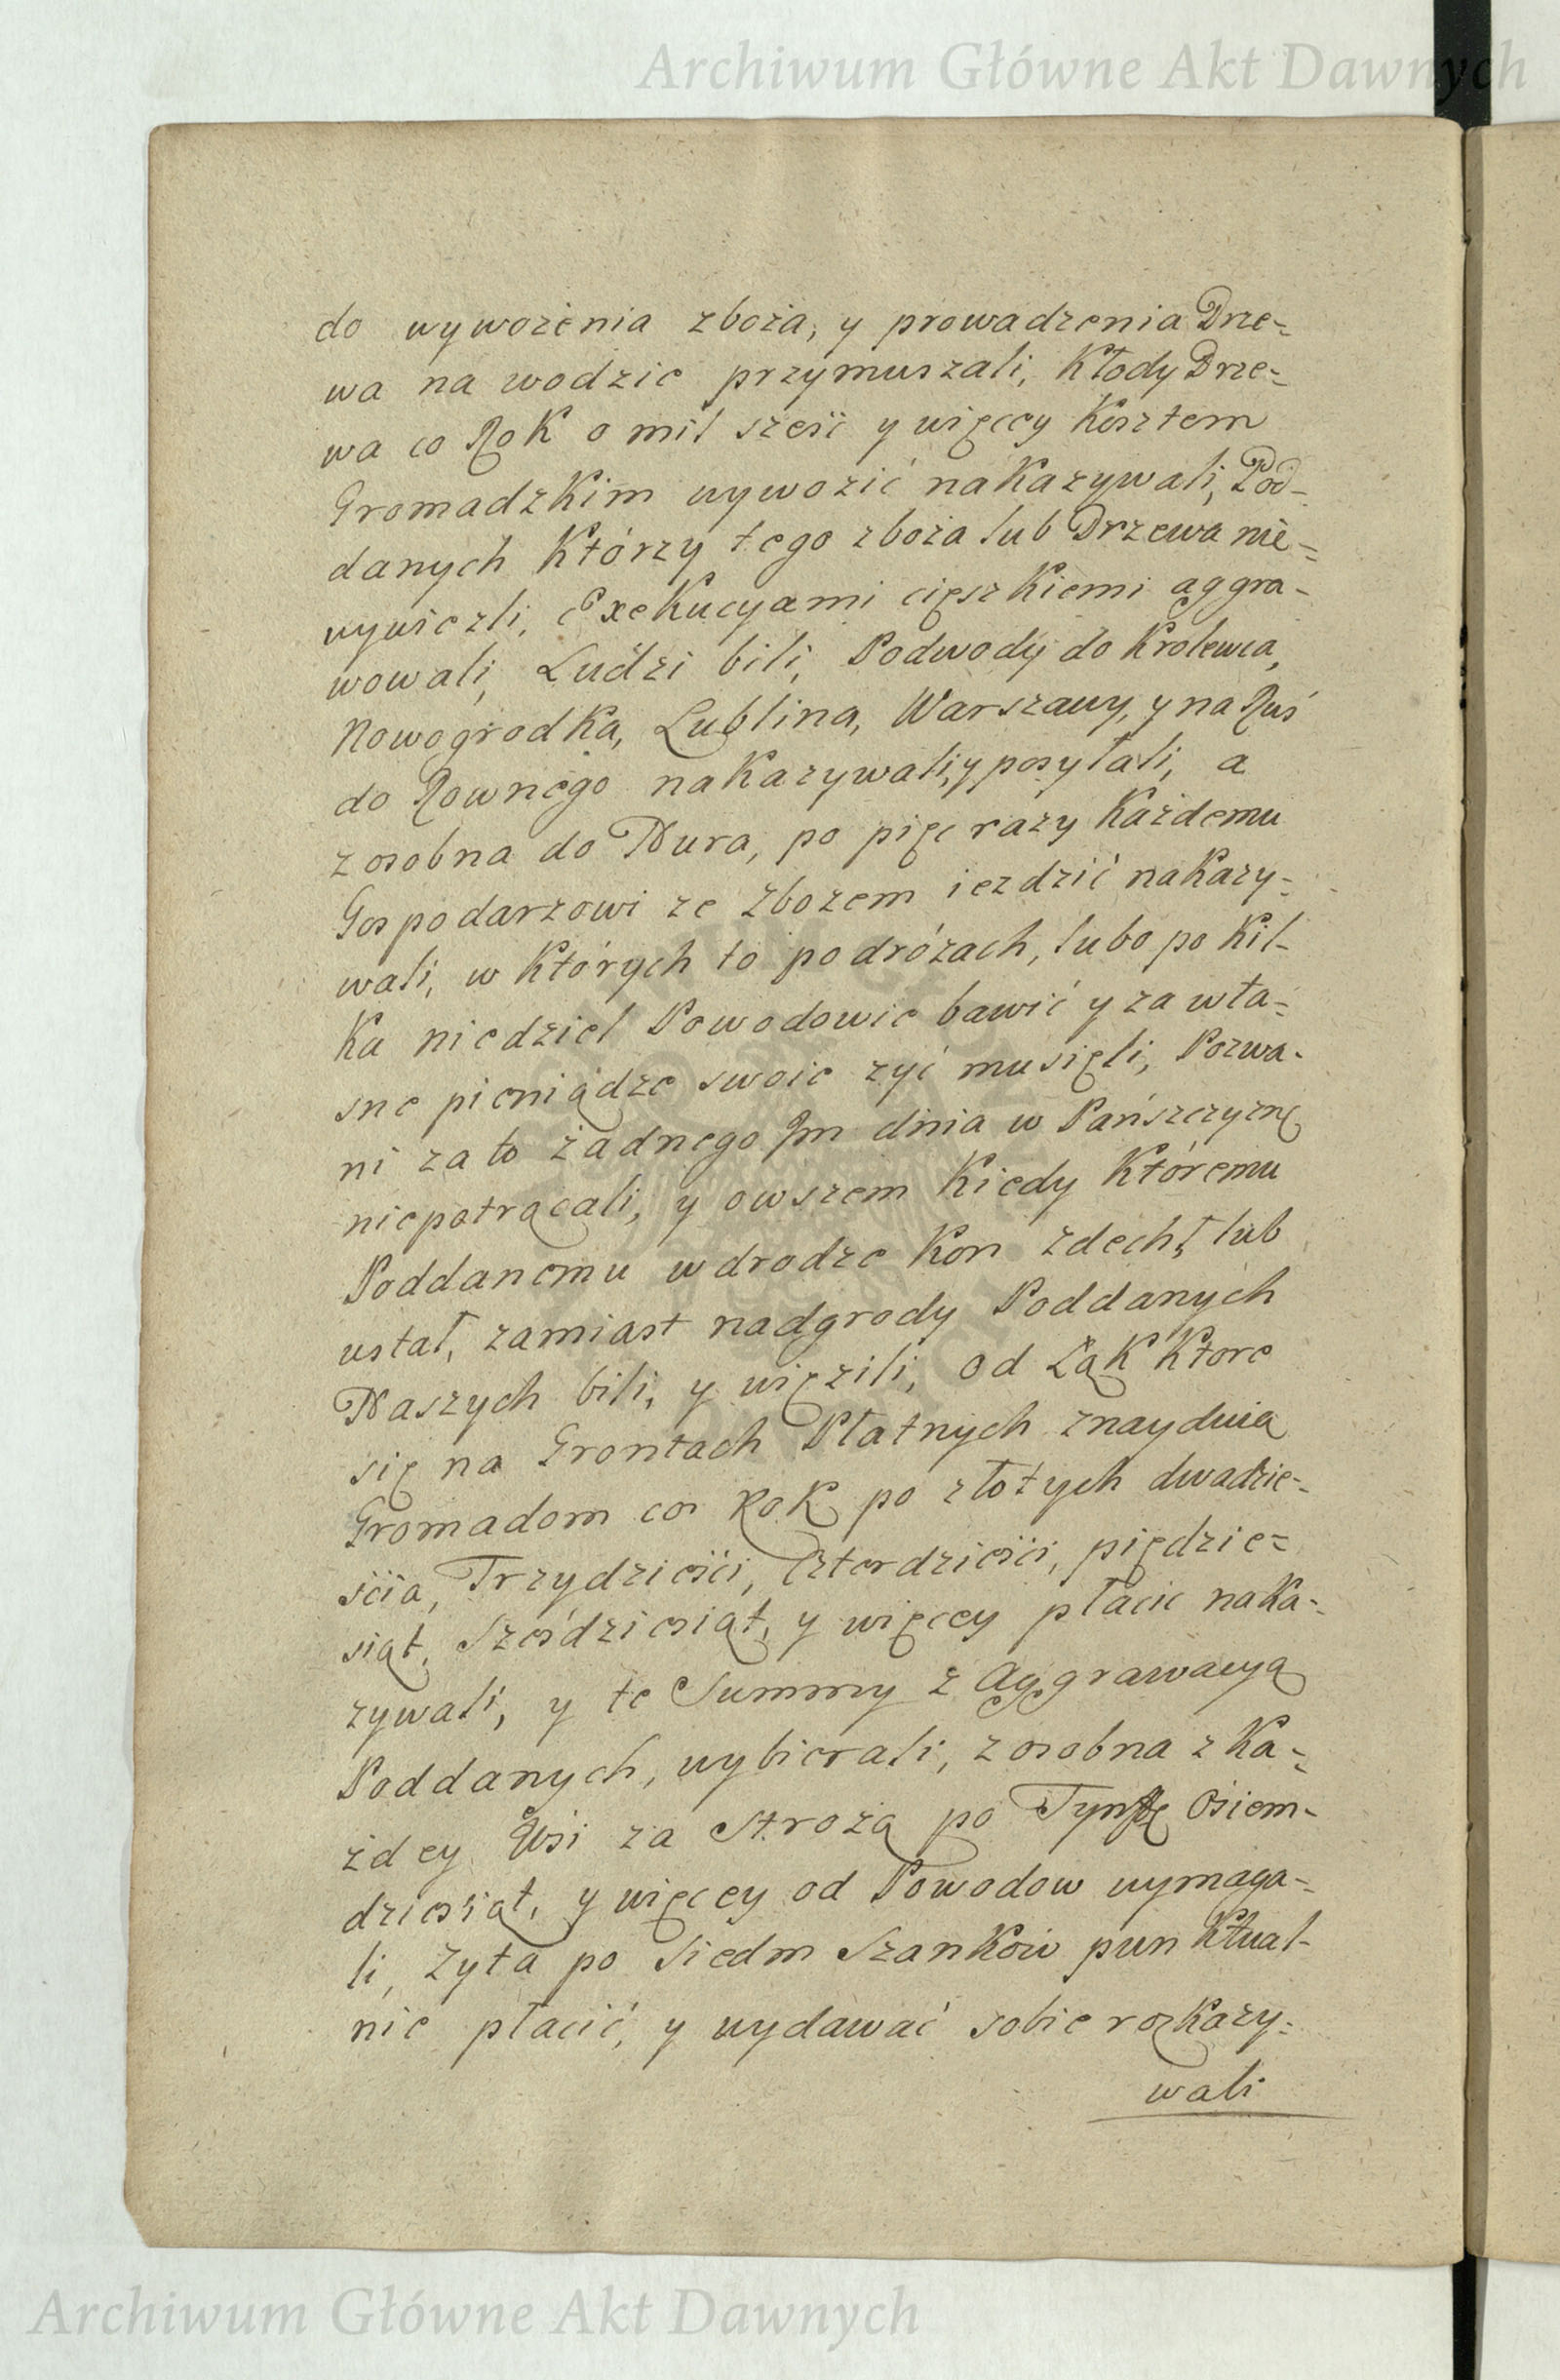 Archiwum Główne Akt Dawnych
do wywożenia zboża, y prowadzenia Drze=
wa na wodzie przymuszali, Kłody Drze=
wa co Rok o mil sześć y więcey Kosztem
Gromadzkim wywozić naKazywali, Pod-
danych Którzy tego zboża lub Drzewa nie=
wywiezli, ExeKucyami cięszkiemi aggra-
wowali, Ludzi bili, Podwody do Krolewca,
NowogrodKa, Lublina, Warszawy, y na Ruś
do Rownego naKazywali, y posyłali, a
zosobna do Nura, po pięc razy Każdemu
Gospodarzowi ze zbożem iezdzić naKazy=
wali, w Których to podróżach, lubo po Kil-
Ka niedziel Powodowie bawić y za wła=
sne pieniądze swoie zyć musięli, Pozwa-
ni za to żadnego Im dnia w Pańszczyznę
niepotrącali, y owszem Kiedy Któremu
Poddanemu w drodze Kon zdechł, lub
ustał, zamiast nadgrody Poddanych
Naszych bili, y więzili, od Łąk Ktore
się na Grontach Płatnych znayduią
Gromadom co RoK po złotych dwadzie=
ścia, Trzydzieści, Czterdzieści, piędzie=
siąt, Sześdziesiąt, y więcey płacic naKa=
zywali, y te Summy z Aggrawacyą
Poddanych, wybierali, zosobna z Ka=
żdey Wsi za Stroża po Tynfę Osiem-
dziesiąt, y więcey od Powodow wymaga=
li, Zyta po Siedm SzanKów punKtual-
nie płacić, y wydawać sobie rozKazy=
wali
Archiwum Główne Akt Dawnych